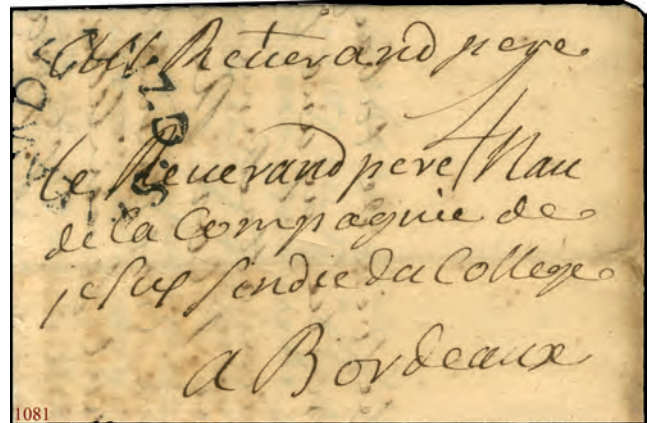 Reuerand pere
le Reuerand pere Nau
de la Compagnie de
jesus sendic du College
a Bordeaux
1081